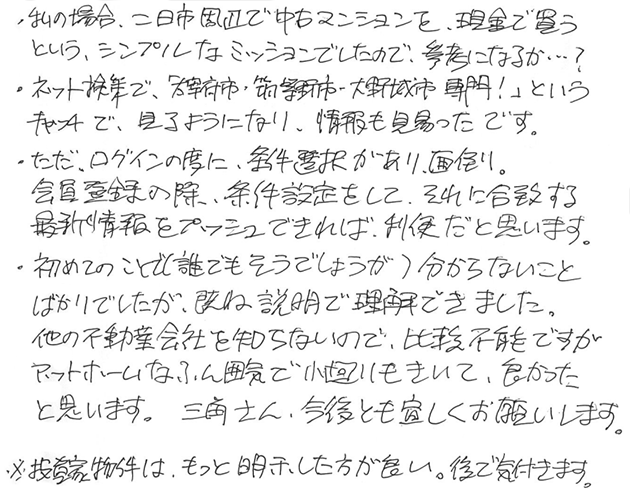 ・私の場合、二日市周辺で中古マンションを、現金で買う
という、シンプルなミッションでしたので、参考になるか…?
・ネット検索で、「太宰府市・筑紫野市・大野城市 専門!」という
キャッチで、見るようになり、情報も見易ったです。
・ただ、ログインの度に、条件選択があり、面倒り。
会員登録の際、条件設定をして、それに合致する
最新情報をプッシュできれば、利便だと思います。
・初めてのことで(誰でもそうでしょうが)分からないこと
ばかりでしたが、概ね説明で理解できました。
他の不動産会社を知らないので、比較不能ですが
アットホームなふん囲気で小回りもきいて、良かった
と思います。 三角さん、今後とも宜しくお願いします。
※投資家物件は、もっと明示した方が良い。後で気付きます。